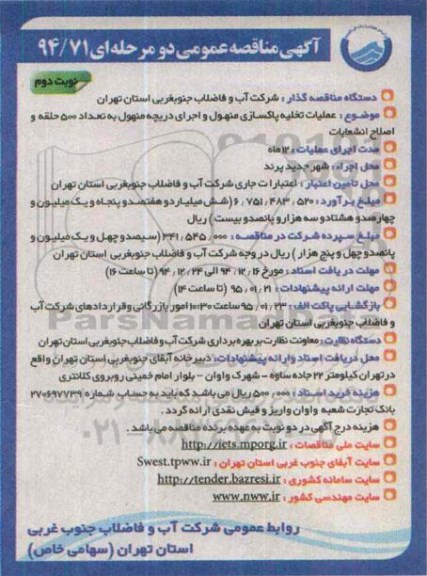 آگهی مناقصه عمومی دو مرحله ای ۹۴/۷۱
نوبت دوم
دستگاه مناقصه گذار : شرکت آب و فاضلاب جنوبغربی استان تهران
موضوع : عملیات تخلیه پاکسازی منهول و اجرای دریچه منهول به تعداد ۵۰۰ حلقه و
اصلاح انشعابات
مدت اجرای عملیات : ۱۲ ماه
محل اجراء : شهر جدید پرند
محل تامین اعتبار : اعتبارات جاری شرکت آب و فاضلاب جنوبغربی استان تهران
مبلغ برآورد : ۶,۷۵۱,۴۸۳,۵۲۰ (شش میلیارد و هفتصد و پنجاه و یک میلیون و
چهارصد و هشتاد و سه هزار و پانصد و بیست ) ریال
مبلغ سپرده شرکت در مناقصه : ۳۴۱,۵۴۵,۰۰۰ (سیصد و چهل و یک میلیون و
پانصد و چهل و پنج هزار ) ریال در وجه شرکت آب و فاضلاب جنوبغربی استان تهران
مهلت دریافت اسناد : مورخ ۹۴,۱۲,۱۶ الی ۹۴,۱۲,۲۴ (تا ساعت ۱۶)
مهلت ارائه پیشنهادات : ۹۵,۰۱,۲۱ (تا ساعت ۱۴)
بازگشایی پاکت الف : ۹۵,۰۱,۲۳ ساعت ۱۰:۳۰ امور بازرگانی و قراردادهای شرکت آب
و فاضلاب جنوبغربی استان تهران
دستگاه نظارت : معاونت نظارت بر بهره برداری شرکت آب و فاضلاب جنوبغربی استان تهران
محل دریافت اسناد و ارائه پیشنهادات : دبیرخانه آبفای جنوبغربی استان تهران واقع
در تهران کیلومتر ۲۲ جاده ساوه - شهرک واوان - بلوار امام خمینی روبروی کلانتری
هزینه خرید اسناد : ۵۰۰,۰۰۰ ریال می باشد که باید به حساب شماره ۲۷۰۶۹۷۷۳۹
بانک تجارت شعبه واوان واریز و فیش نقدی ارائه گردد .
هزینه درج آگهی در دو نوبت به عهده برنده مناقصه می باشد .
سایت ملی مناقصات : http://iets.mporg.ir
سایت آبفای جنوب غربی استان تهران : Swest.tpww.ir
سایت سامانه کشوری : http://tender.bazresi.ir
سایت مهندسی کشور : www.nww.ir
روابط عمومی شرکت آب و فاضلاب جنوب غربی
استان تهران (سهامی خاص)